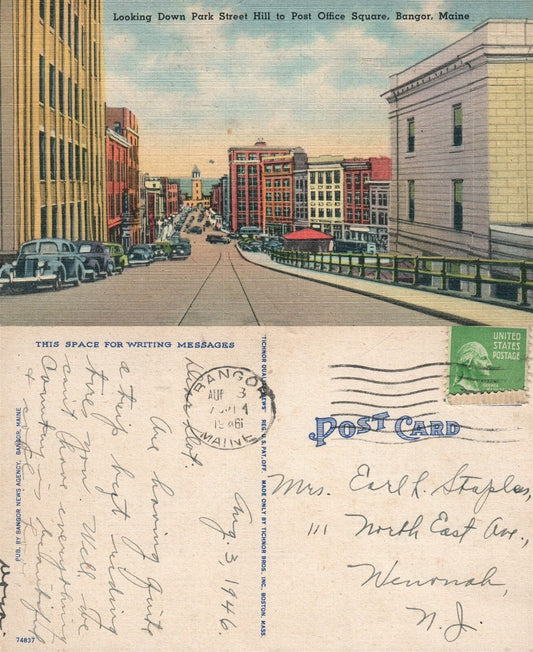 Looking Down Park Street Hill to Post Office Square, Bangor, Maine
THIS SPACE FOR WRITING MESSAGES
Aug. 3, 1946.
Dear Dot.
Are having quite
a trip but riding
tires you. Well we
can't have everything
Country is beautiful
&
PUB. BY BANGOR NEWS AGENCY, BANGOR, MAINE
74837
TICHNOR QUALITY VIEWS REG. U.S. PAT. OFF. MADE ONLY BY TICHNOR BROS. INC., BOSTON, MASS.
BANGOR
AUG 3
1946
MAINE
UNITED
STATES
POSTAGE
POST CARD
Mrs. Earl R. Staples,
111 North East Ave.,
Wenonah,
N.J.